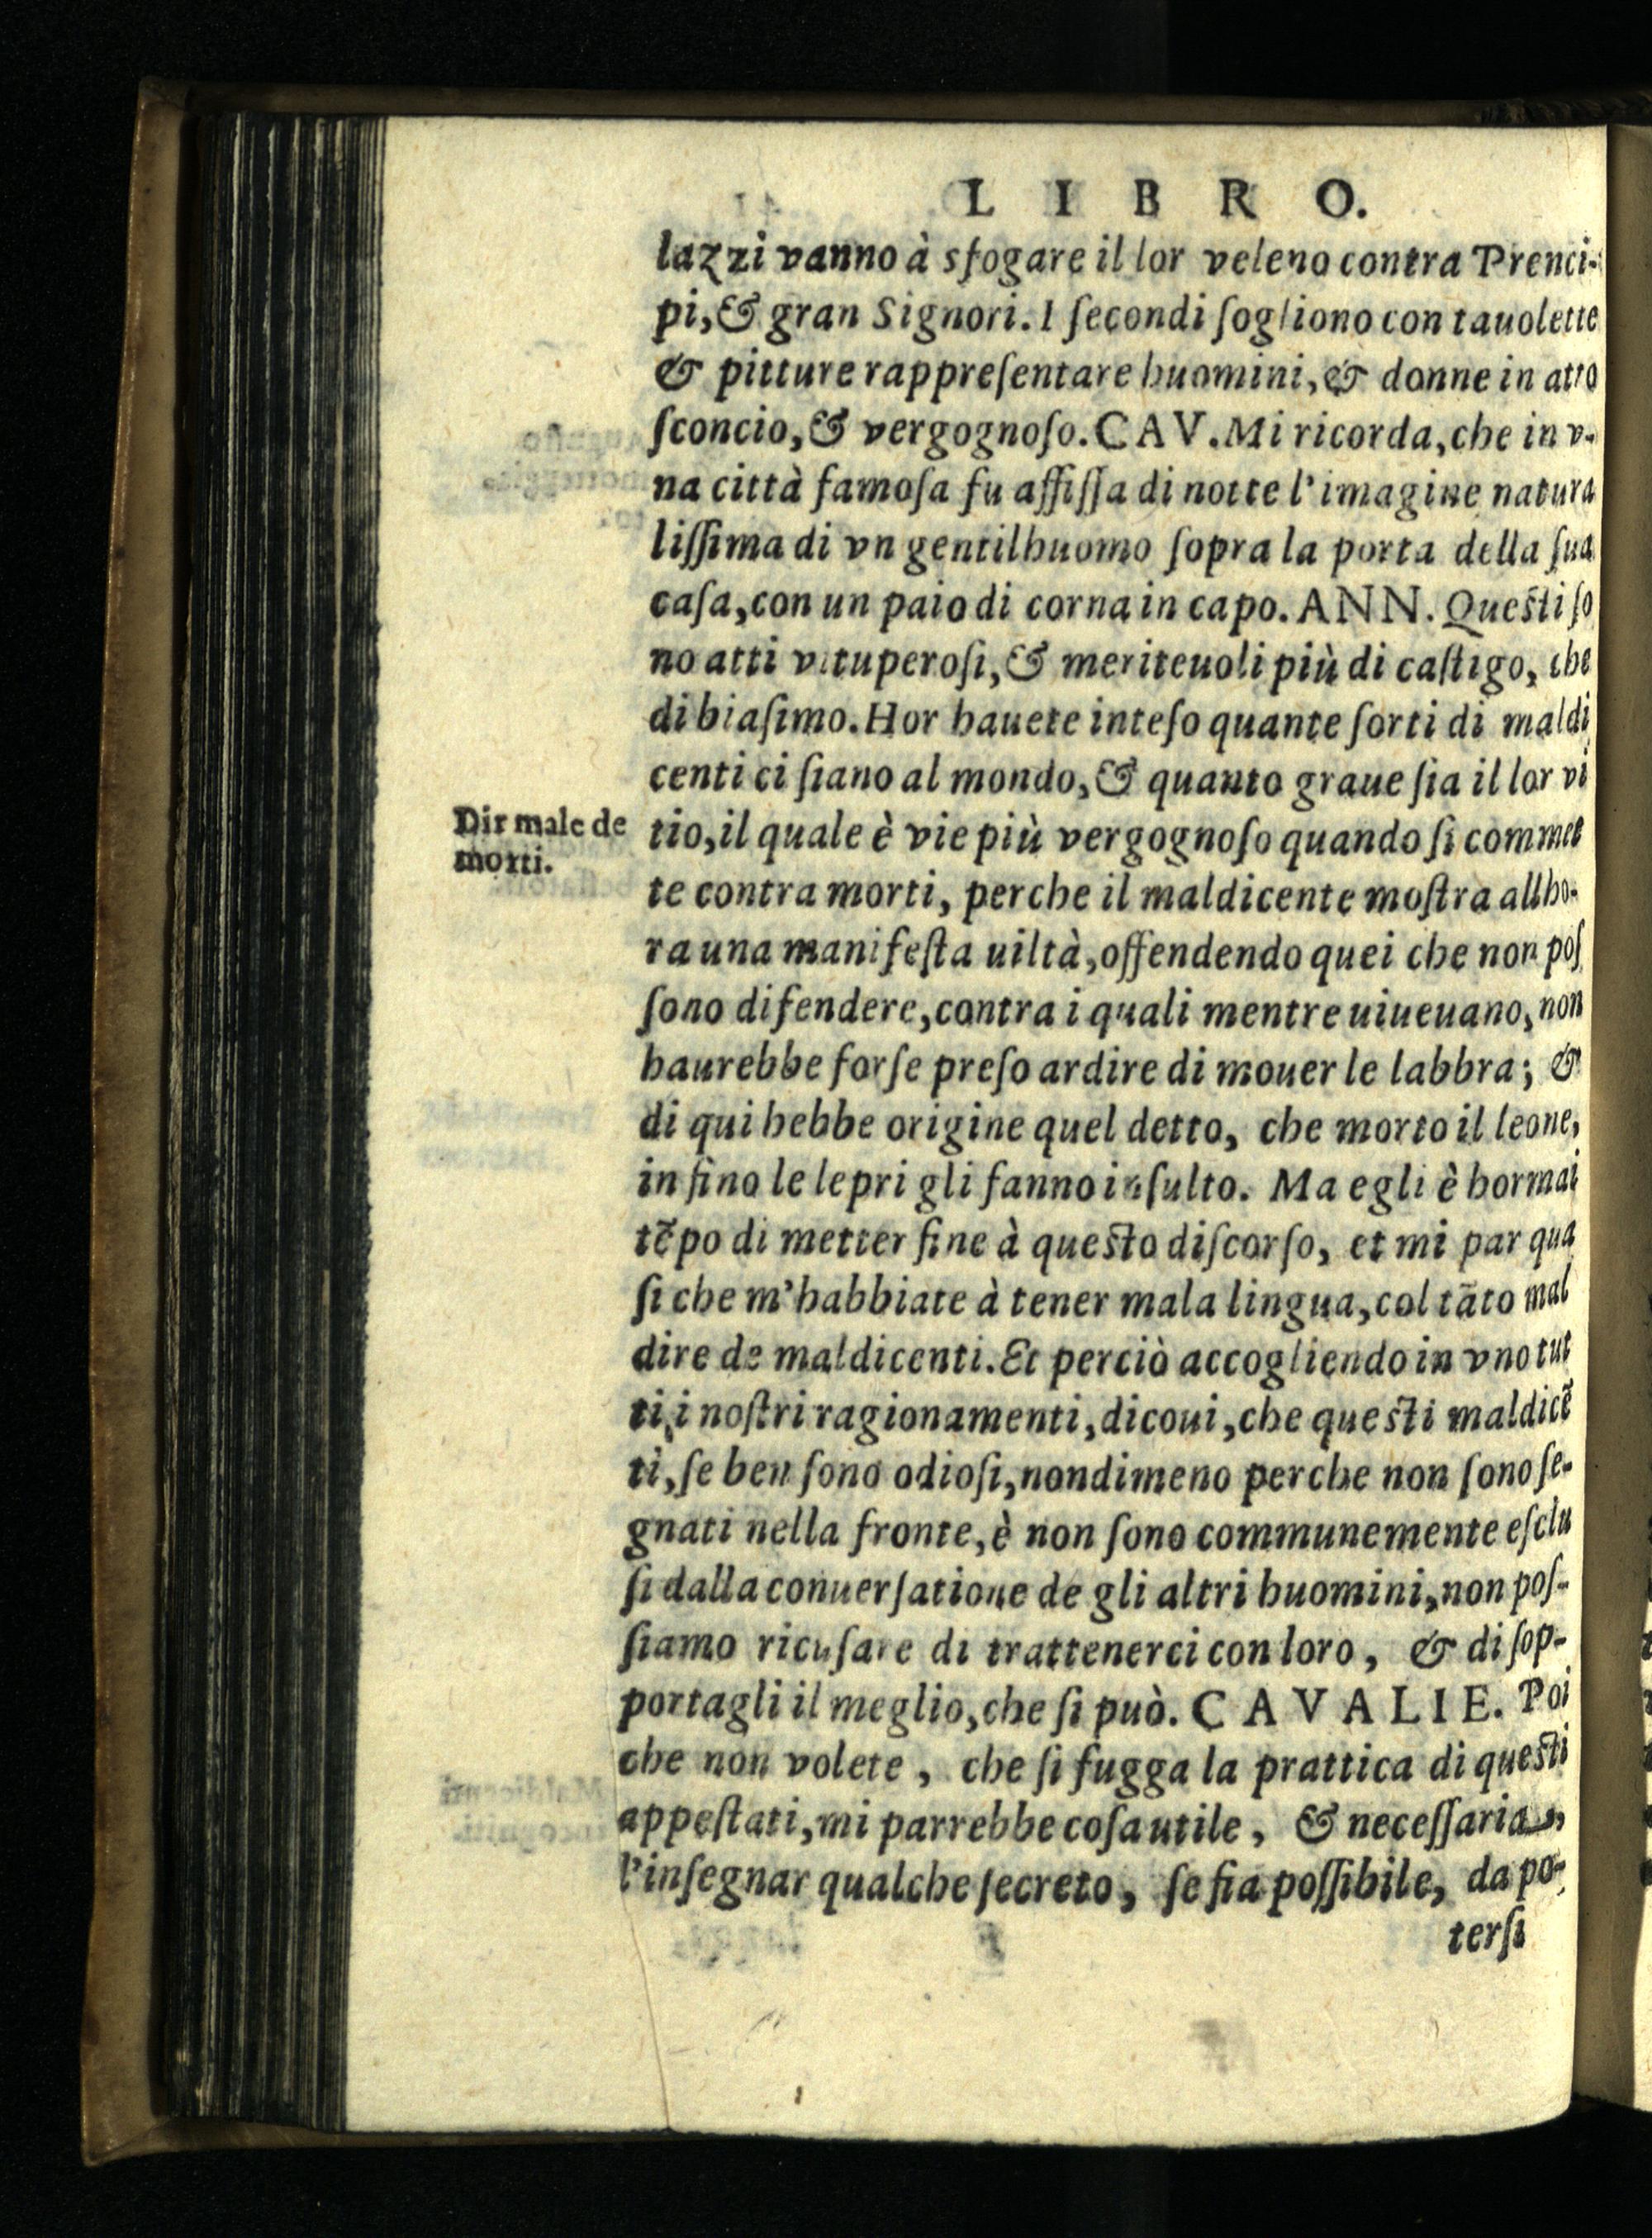 LIBRO.
lazzi vanno à sfogare il lor veleno contra Prenci-
pi, & gran Signori. I ſecondi ſogliono con tauolette
& pitture rappreſentare huomini, & donne in atto
ſconcio, & vergognoſo. CAV. Mi ricorda, che in v-
na città famoſa fu affiſſa di notte l'imagine natura
liſſima di vn gentilhuomo ſopra la porta della ſua
caſa, con un paio di corna in capo. ANN. Queſti ſo
no atti vituperoſi, & meriteuoli più di caſtigo, che
di biaſimo. Hor hauete inteſo quante ſorti di maldi
centi ci ſiano al mondo, & quanto graue ſia il lor vi
Dir male de
morti.
tio, il quale è vie più vergognoſo quando ſi commet
te contra morti, perche il maldicente moſtra allho-
ra una manifeſta uiltà, offendendo quei che non poſ
ſono difendere, contra i quali mentre uiueuano, non
haurebbe forſe preſo ardire di mouer le labbra; &
di qui hebbe origine quel detto, che morto il leone,
in fino le lepri gli fanno inſulto. Ma egli è hormai
tẽpo di metter fine à queſto diſcorſo, et mi par qua
ſi che m'habbiate à tener mala lingua, col tãto mal
dire de maldicenti. Et perciò accogliendo in vno tut
ti i noſtri ragionamenti, dicoui, che queſti maldicẽ
ti, ſe ben ſono odioſi, nondimeno perche non ſono ſe-
gnati nella fronte, è non ſono communemente eſclu
ſi dalla conuerſatione de gli altri huomini, non poſ-
ſiamo ricuſare di trattenerci con loro, & di ſop-
portagli il meglio, che ſi può. CAVALIE. Poi
che non volete, che ſi fugga la prattica di queſti
appeſtati, mi parrebbe coſa utile, & neceſſaria,
l'inſegnar qualche ſecreto, ſe fia poſſibile, da po-
terſi